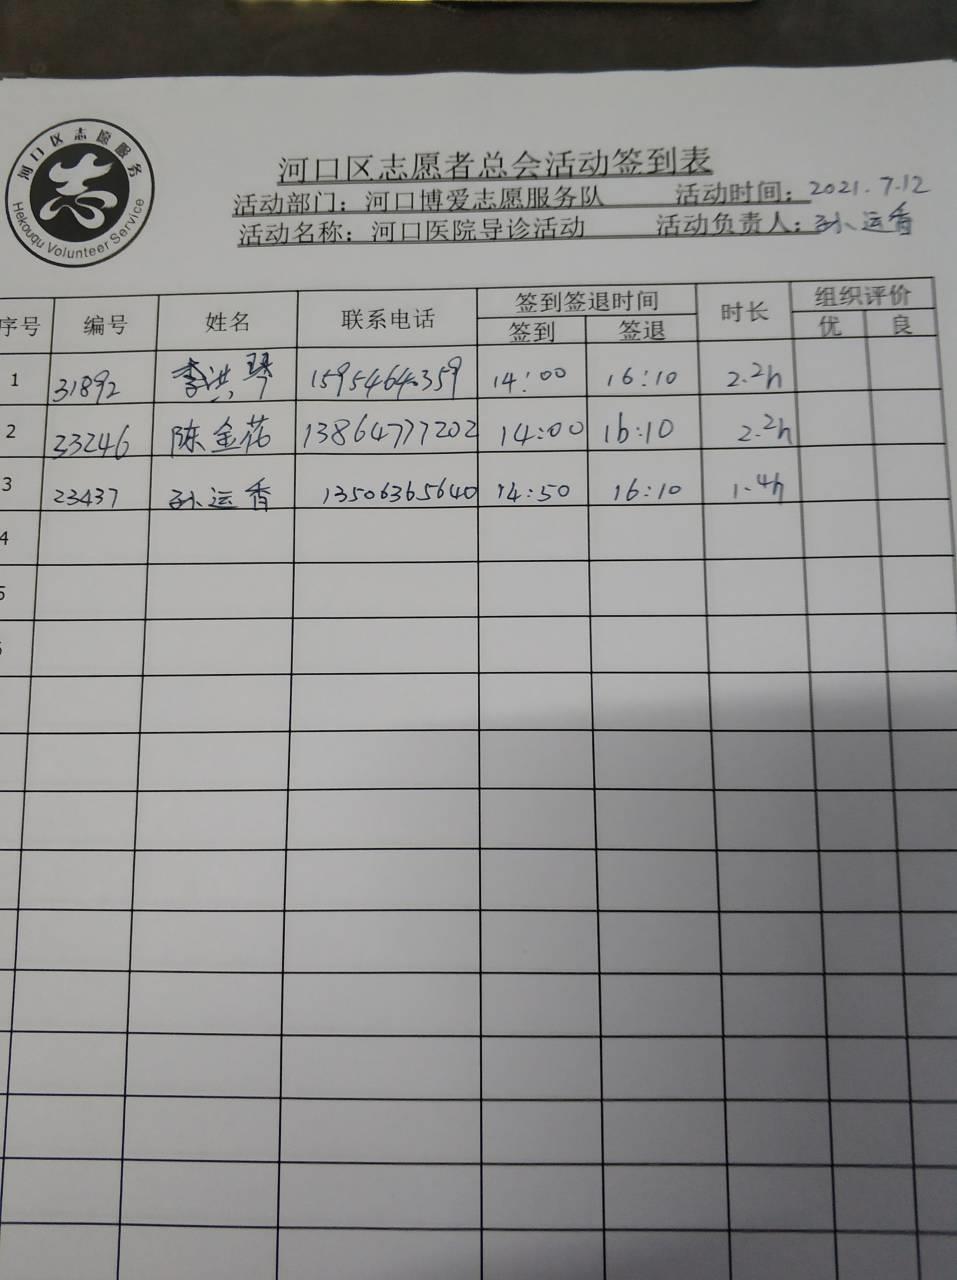 河口区志愿服务
Hekouqu Volunteer Service
河口区志愿者总会活动签到表
活动部门：河口博爱志愿服务队 活动时间：2021.7.12
活动名称：河口医院导诊活动 活动负责人：孙运香
序号 编号 姓名 联系电话 签到签退时间 时长 组织评价
签到 签退 优 良
1 31892 李洪琴 14:00 16:10 2.2h
2 33246 陈金花 13864777202 14:00 16:10 2.2h
3 23437 孙运香 13506365640 14:50 16:10 1.4h
4
5